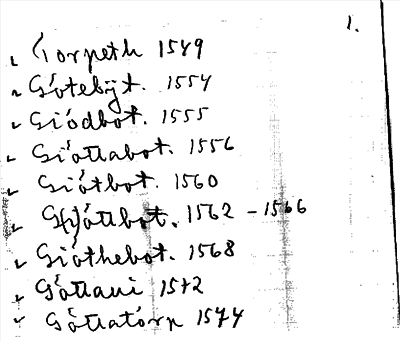 1.
Torpeth 1549
Götebÿt. 1554
Giódbot. 1555
Giöttabot. 1556
Giötbot. 1560
1562 - 1566
Giöthebot. 1568
Göttaui 1572
Göttatorp 1574